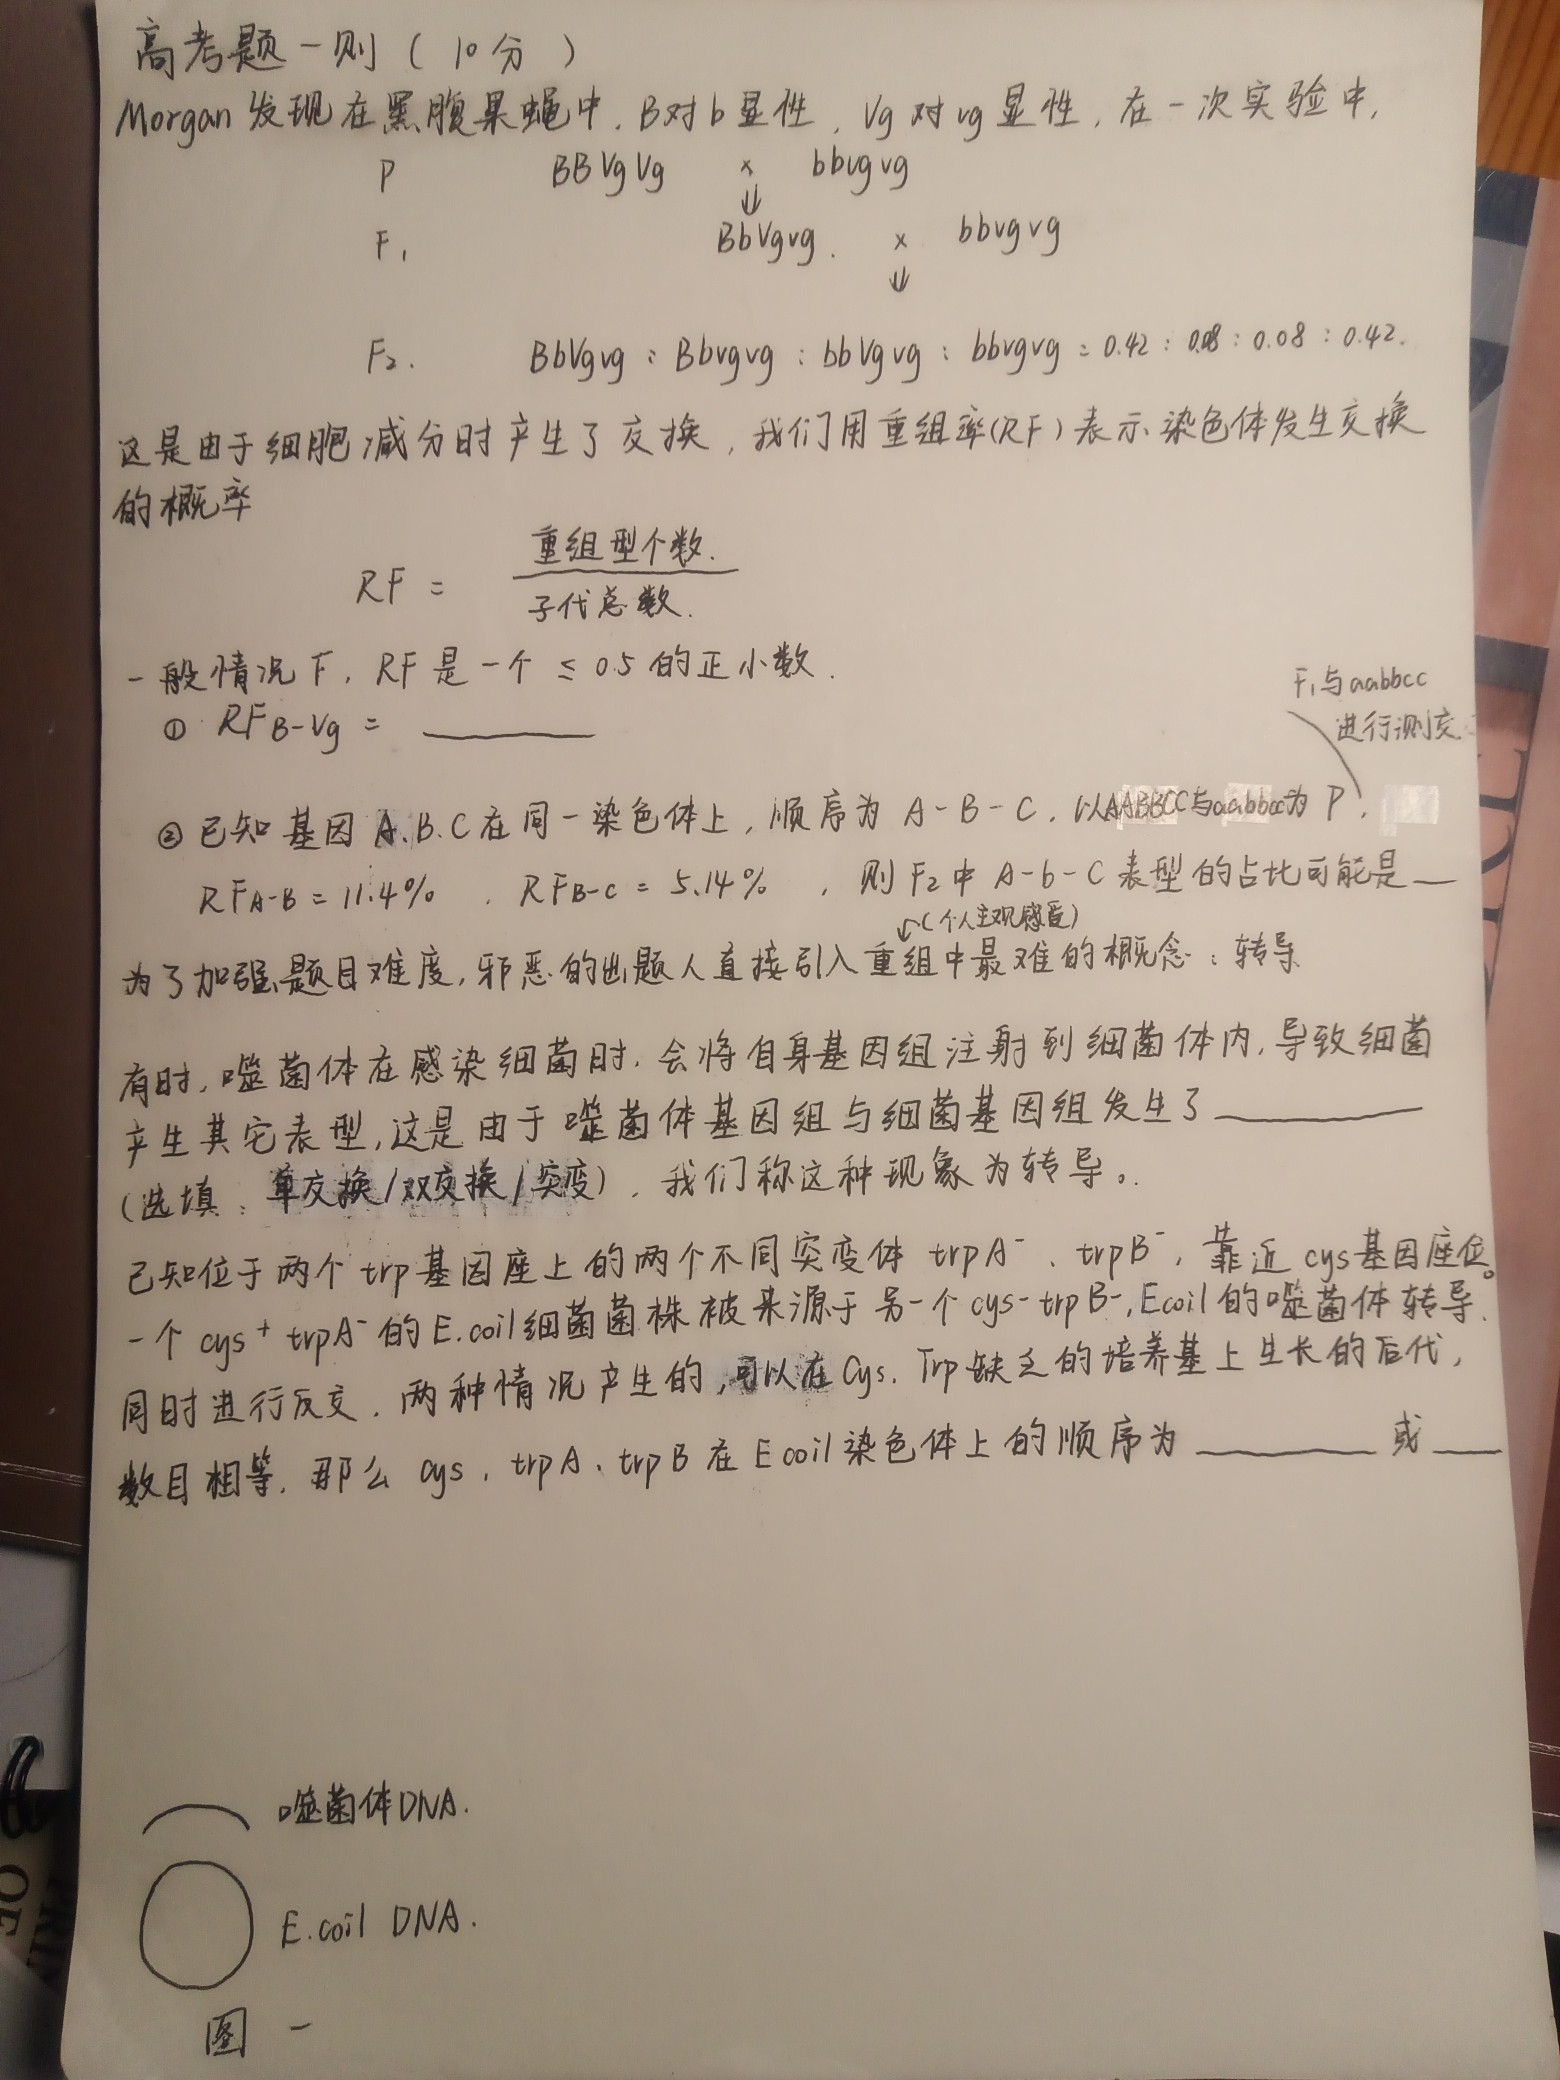 高考题一则（10分）
Morgan发现在黑腹果蝇中，B对b显性，Vg对vg显性，在一次实验中，
P BBVgVg × bbvgvg
↓
F₁ BbVgvg. × bbvgvg
↓
F₂. BbVgvg : Bbvgvg : bbVgvg : bbvgvg = 0.42 : 0.08 : 0.08 : 0.42.
这是由于细胞减分时产生了交换，我们用重组率(RF)表示染色体发生交换
的概率
RF = 重组型个数.
子代总数.
一般情况下，RF是一个≤0.5的正小数.
① RFB-Vg = ______
F₁与aabbcc
进行测交.
② 已知基因A.B.C在同一染色体上，顺序为A-B-C，以AABBCC与aabbcc为P，
RFA-B = 11.4%，RFB-C = 5.14%，则F₂中A-b-C表型的占比可能是__
↙(个人主观感受)
为了加强题目难度，邪恶的出题人直接引入重组中最难的概念：转导
有时，噬菌体在感染细菌时，会将自身基因组注射到细菌体内，导致细菌
产生其它表型，这是由于噬菌体基因组与细菌基因组发生了______
(选填：单交换/双交换/突变)，我们称这种现象为转导。
已知位于两个trp基因座上的两个不同突变体trpA⁻、trpB⁻，靠近cys基因座位。
一个cys⁺ trpA⁻的E.coil细菌菌株被来源于另一个cys⁻trpB⁻，Ecoil的噬菌体转导.
同时进行反交，两种情况产生的，可以在Cys、Trp缺乏的培养基上生长的后代，
数目相等，那么cys，trpA、trpB在Ecoil染色体上的顺序为______或___
噬菌体DNA.
E.coil DNA.
图一
OF